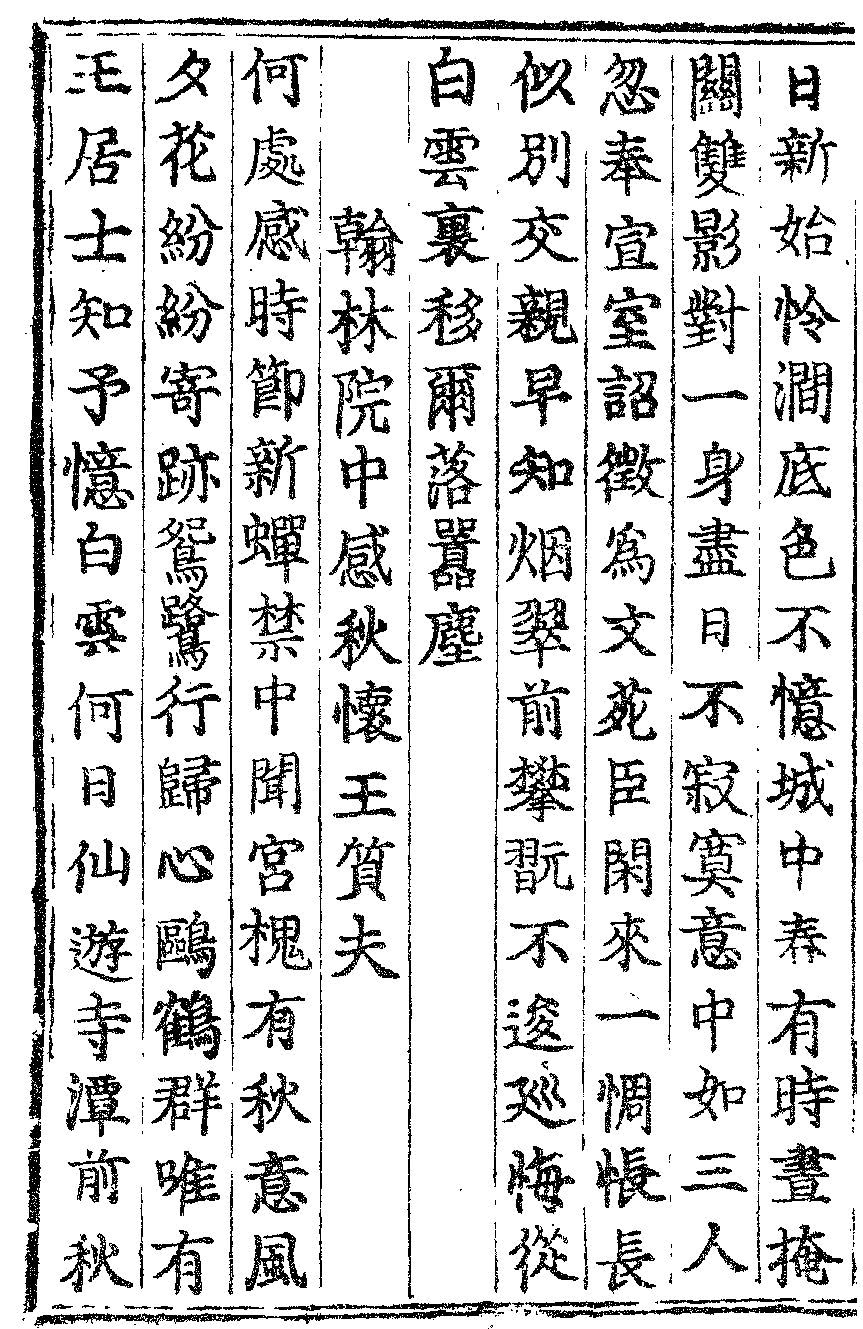 日新始怜澗底色不憶城中春有時晝掩
關雙影對一身盡日不寂寞意中如三人
忽奉宣室詔徵爲文苑臣閑來一惆悵長
似別交親早知烟翠前攀翫不逡廵悔從
白雲裏移爾落囂塵
翰林院中感秋懷王質夫
何處感時節新蟬禁中聞宮槐有秋意風
夕花紛紛寄跡鴛鷺行歸心鷗鶴群唯有
王居士知予憶白雲何日仙遊寺潭前秋